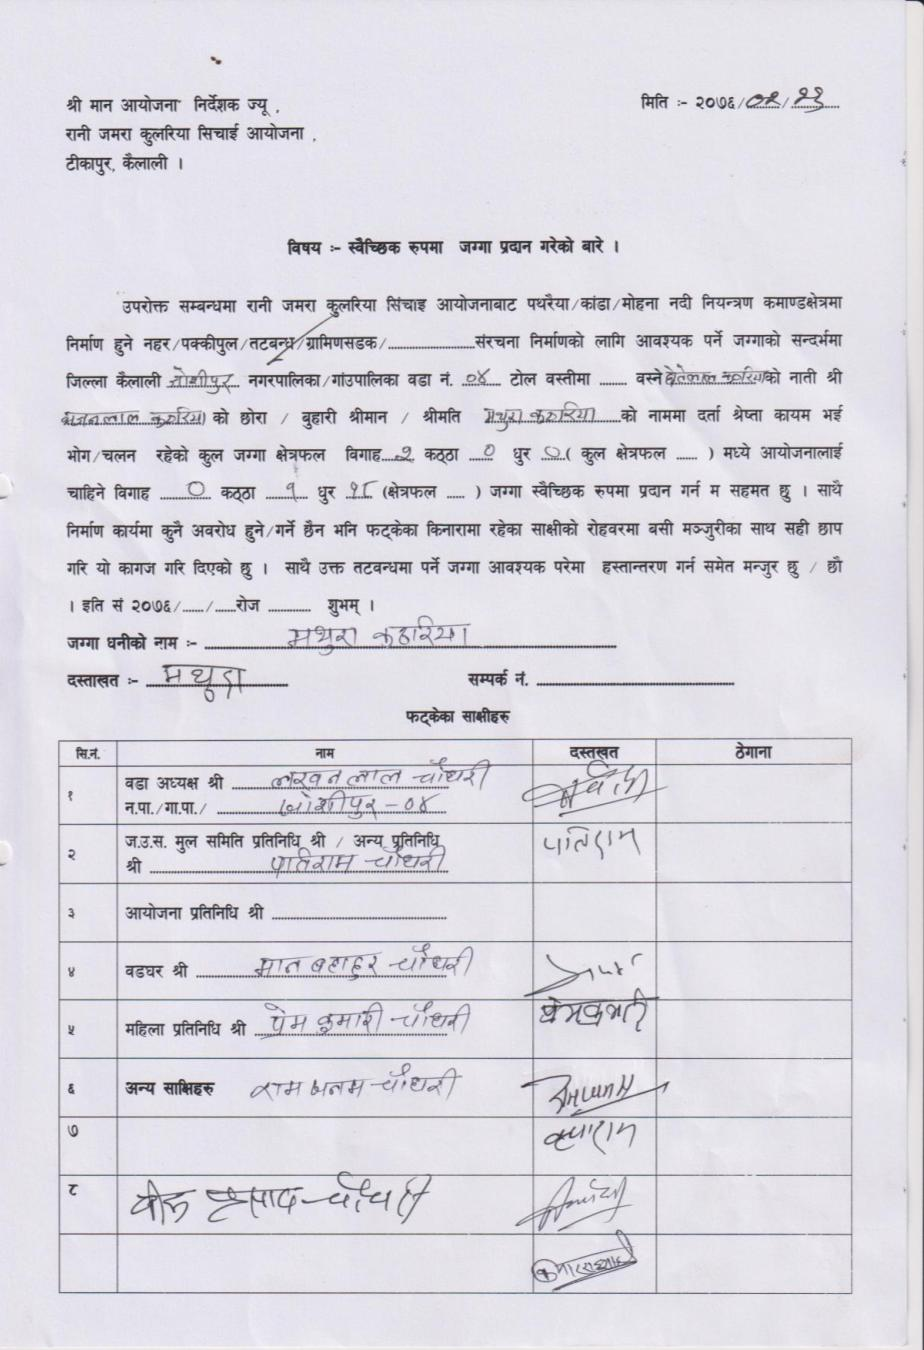 श्री मान आयोजना निर्देशक ज्यू ,
मिति :- २०७६/०२/२३
रानी जमरा कुलरिया सिचाई आयोजना ,
टीकापुर, कैलाली ।
विषय :- स्वैच्छिक रुपमा जग्गा प्रदान गरेको बारे ।
उपरोक्त सम्बन्धमा रानी जमरा कुलरिया सिंचाइ आयोजनाबाट पथरैया/कांडा/मोहना नदी नियन्त्रण कमाण्डक्षेत्रमा
निर्माण हुने नहर/पक्कीपुल/तटबन्ध/ग्रामिणसडक/.........................संरचना निर्माणको लागि आवश्यक पर्ने जग्गाको सन्दर्भमा
जिल्ला कैलाली जोशीपुर नगरपालिका/गांउपालिका वडा नं. ०४ टोल वस्तीमा ........ वस्ने को नाती श्री
को छोरा / बुहारी श्रीमान / श्रीमति मथुरा कठरिया को नाममा दर्ता श्रेप्ता कायम भई
भोग/चलन रहेको कुल जग्गा क्षेत्रफल विगाह २ कठ्ठा ० धुर ० ( कुल क्षेत्रफल ...... ) मध्ये आयोजनालाई
चाहिने विगाह ० कठ्ठा १ धुर १८ (क्षेत्रफल ..... ) जग्गा स्वैच्छिक रुपमा प्रदान गर्न म सहमत छु । साथै
निर्माण कार्यमा कुनै अवरोध हुने/गर्ने छैन भनि फट्केका किनारामा रहेका साक्षीको रोहवरमा बसी मञ्जुरीका साथ सही छाप
गरि यो कागज गरि दिएको छु । साथै उक्त तटबन्धमा पर्ने जग्गा आवश्यक परेमा हस्तान्तरण गर्न समेत मन्जुर छु / छौ
। इति सं २०७६/....../......रोज ............ शुभम् ।
जग्गा धनीको नाम :- मथुरा कठरिया
दस्ताखत :- मथुरा सम्पर्क नं. ......................................................
फट्केका साक्षीहरु
सि.नं. नाम दस्तखत ठेगाना
१ वडा अध्यक्ष श्री लखन लाल चौधरी
न.पा./गा.पा./ जोशीपुर - ०४
२ ज.उ.स. मुल समिति प्रतिनिधि श्री / अन्य प्रतिनिधि
श्री पातिराम चौधरी पातिराम
३ आयोजना प्रतिनिधि श्री ......................................................
४ वडघर श्री मान बहादुर चौधरी
५ महिला प्रतिनिधि श्री प्रेम कुमारी चौधरी प्रेमकुमारी
६ अन्य साक्षिहरु राम चौधरी
७
८ प्रसाद चौधरी